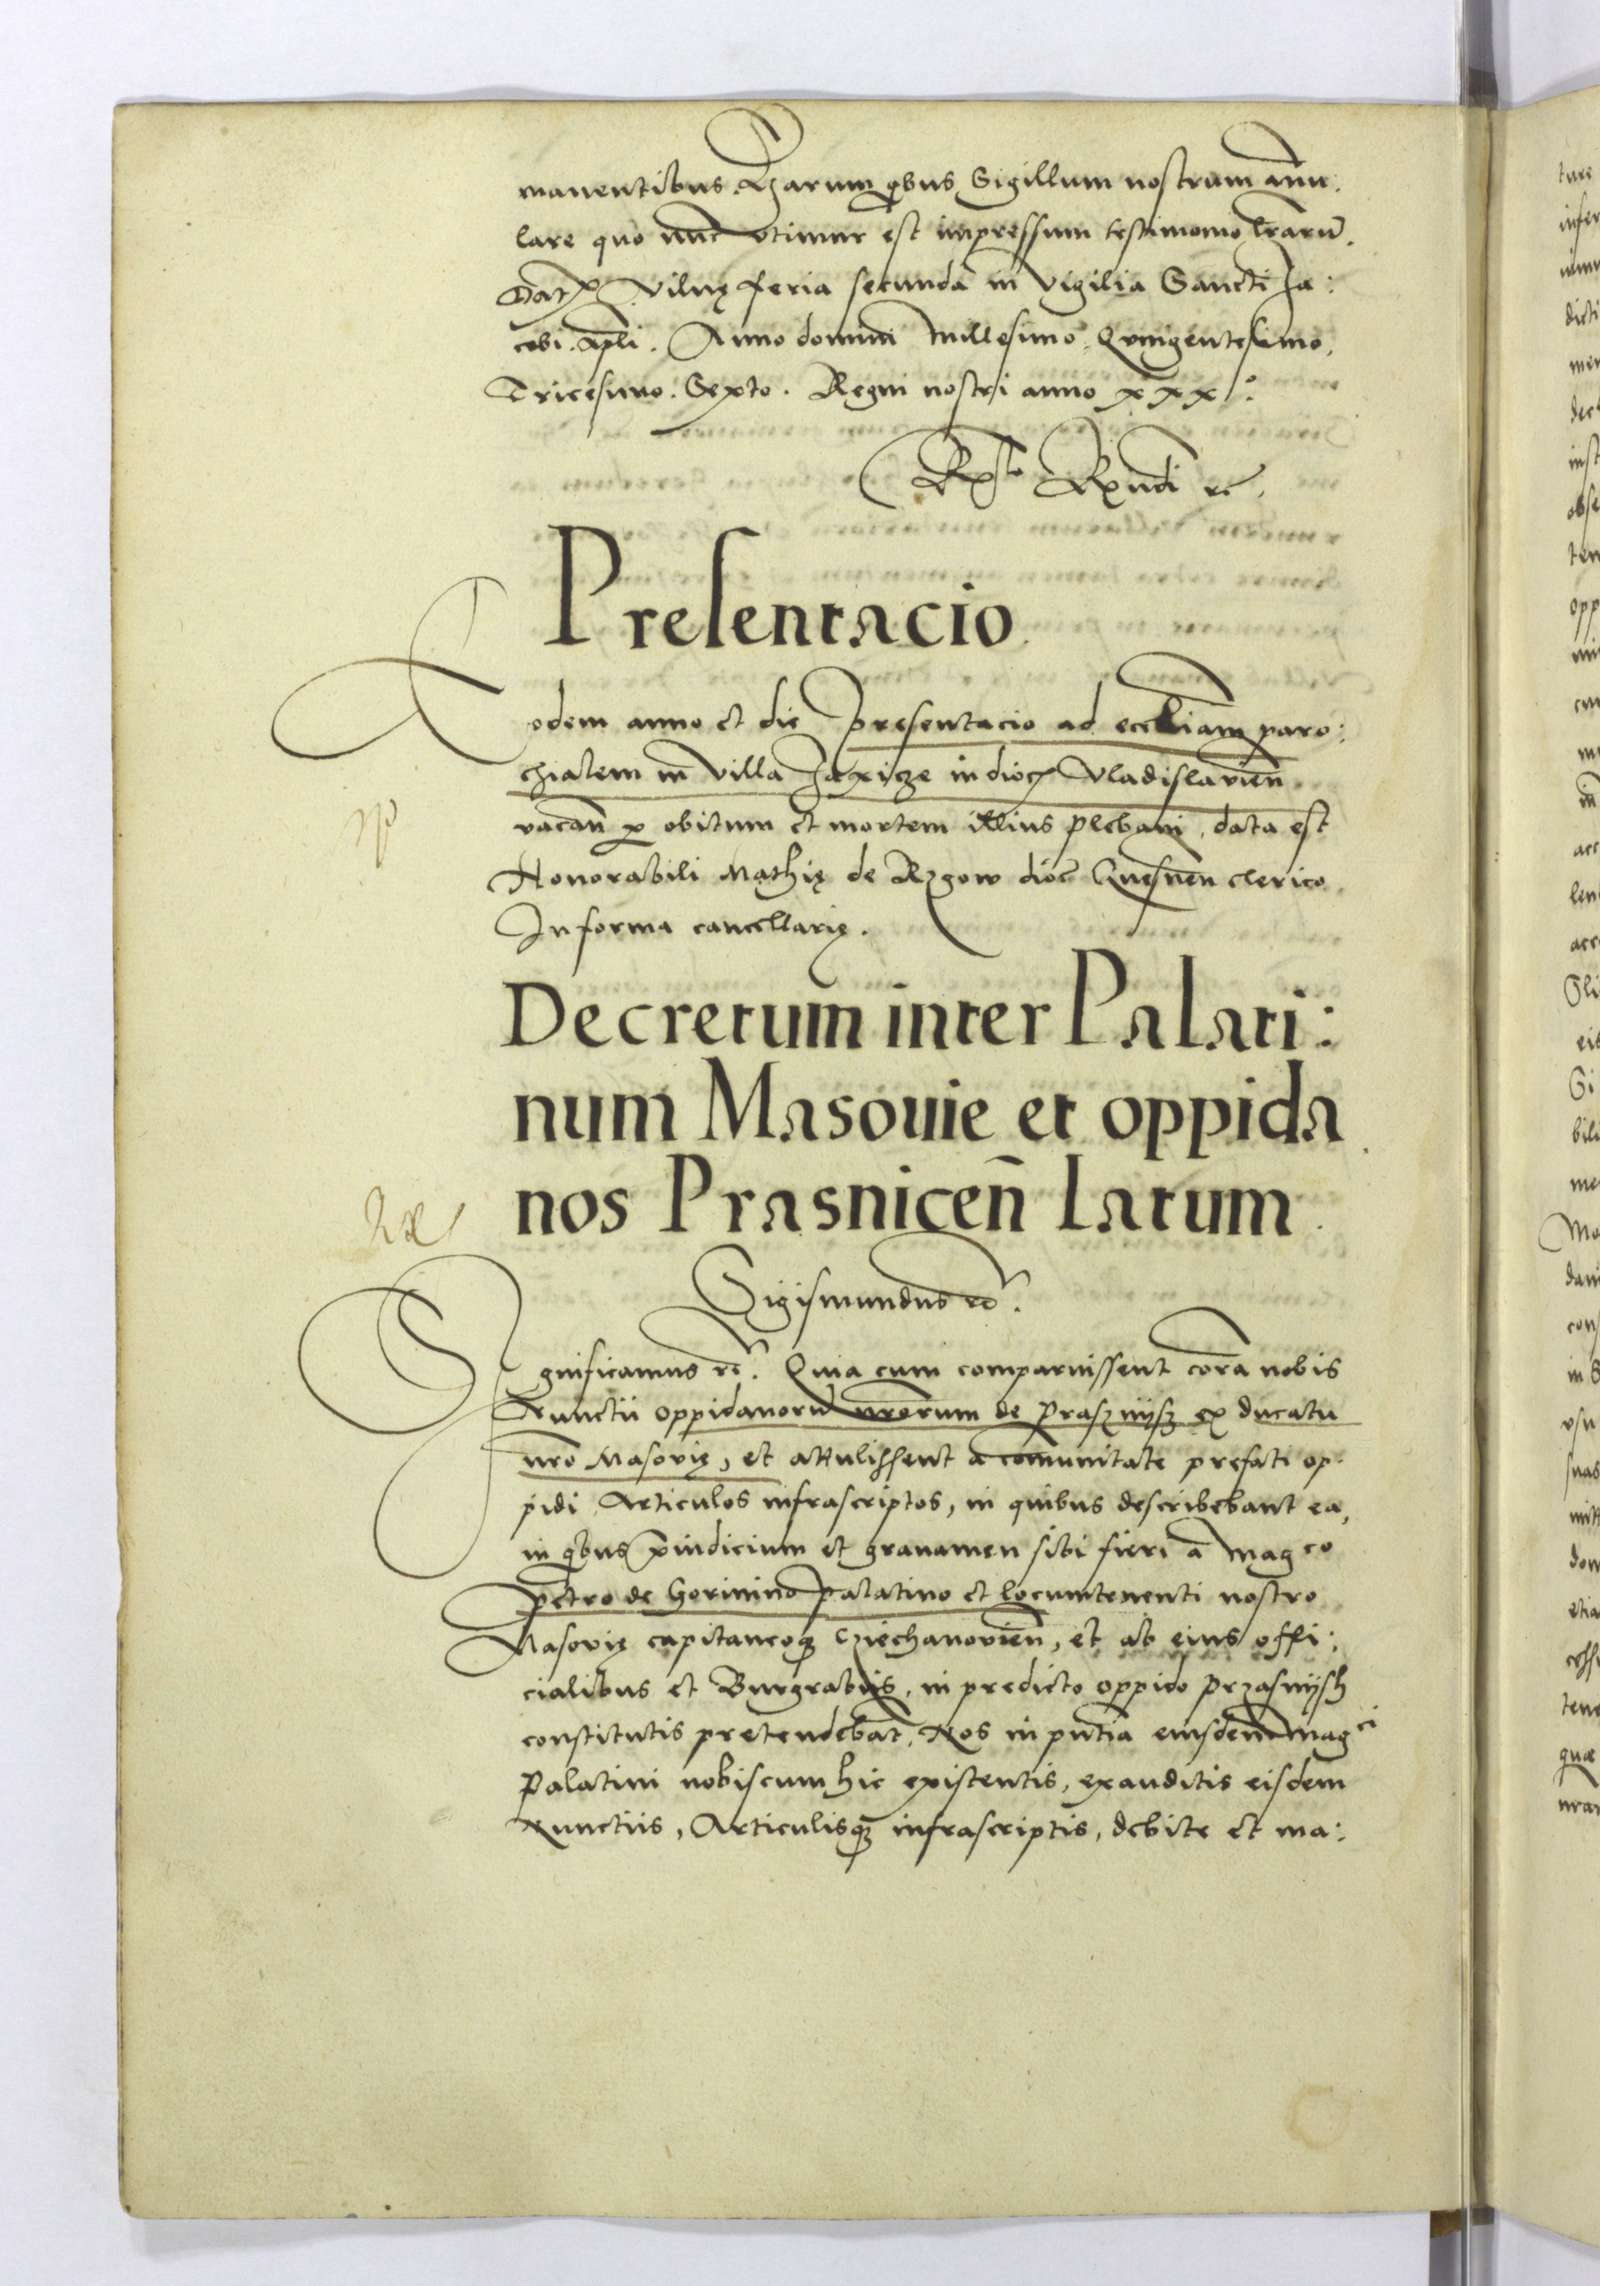 manentibus. Harum qbus Sigillum nostrum annu:
lare quo nunc vtimur est impressum testimonio lrarũ.
Dat Vilnę feria secunda in vigilia Sancti Ja:
cobi. Apli. Anno domini Millesimo. Quingentesimo.
Tricesimo. Sexto. Regni nostri anno xxx°:
Presentacio
Eodem anno et die presentacio ad eccliam paro:
chialem in villa Jaxicze in dioc Vladislavien̄
vacan̄ p obitum et mortem illius plebani, data est
Honorabili Mathię de Rzgow dioc Gnesnen̄ clerico
In forma cancellarię.
Decretum inter Palati:
num Masouie et oppida
nos Prasnicen̄ latum
Sigismundus rc̄.
Significamus rc̄. Quia cum comparuissent corā nobis
Nunctii oppidanorũ nrorum de Prasznijsz ex ducatu
nro Masovię, et attulissent a comunitate prefati op:
pidi Articulos infrascriptos, in quibus describebant ea,
in qbus piudicium et gravamen sibi fieri a Mag^co
Petro de Gorinino Palatino et locumtenenti nostro
Masovię capitaneoq; Cziechanovien̄, et ab eius offi:
cialibus et Burgrabiis, in predicto oppido Przasnijsh
constitutis pretendebāt, Nos in pn̄tia eiusdem Mag^ci
Palatini nobiscum hic existentis, exauditis eisdem
Nunctiis, Articulisq; infrascriptis, debite et ma: